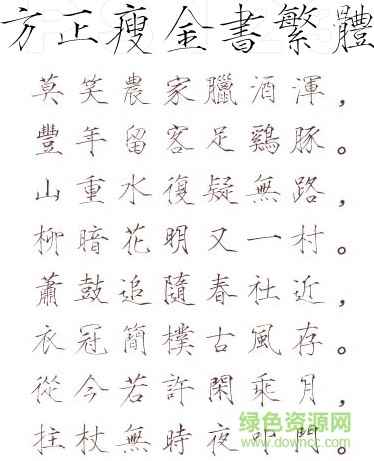 方正瘦金書繁體
莫笑農家臘酒渾，
豐年留客足鷄豚。
山重水復疑無路，
柳暗花明又一村。
蕭鼓追隨春社近，
衣冠簡樸古風存。
從今若許閑乘月，
拄杖無時夜叩門。
绿色资源网
www.downcc.com